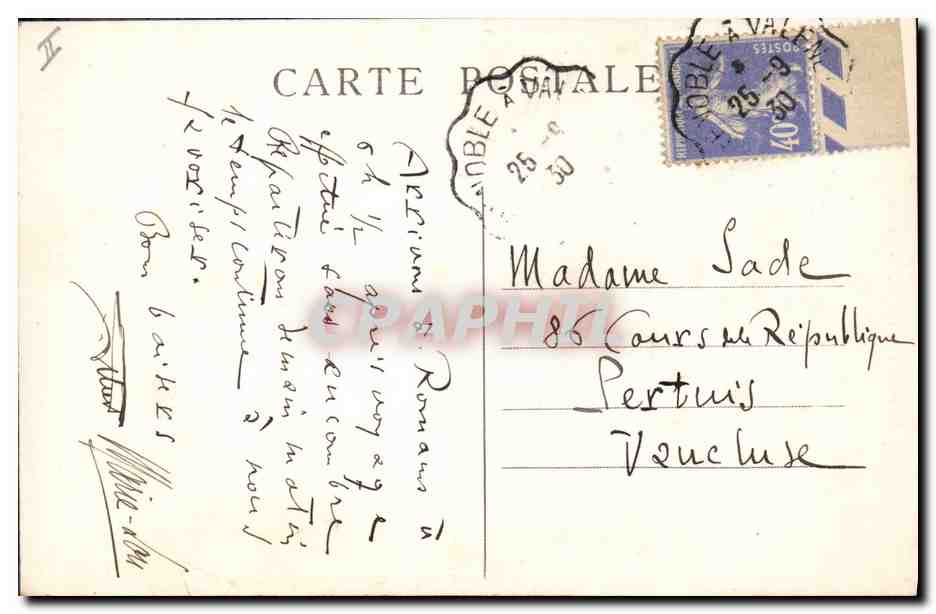 II
CARTE POSTALE
NOBLE A VAL
25 -9
30
NOBLE A VALENC
25 -9
30
POSTES
40c
Arrivons à Romans à
6h 1/2 après voyage
effectué sans encombre
Repartirons demain matin
le temps continue à nous
favoriser.
Bons baisers
Marie-Lou
Madame Sade
86 Cours de la République
Pertuis
Vaucluse
CPAPHIL